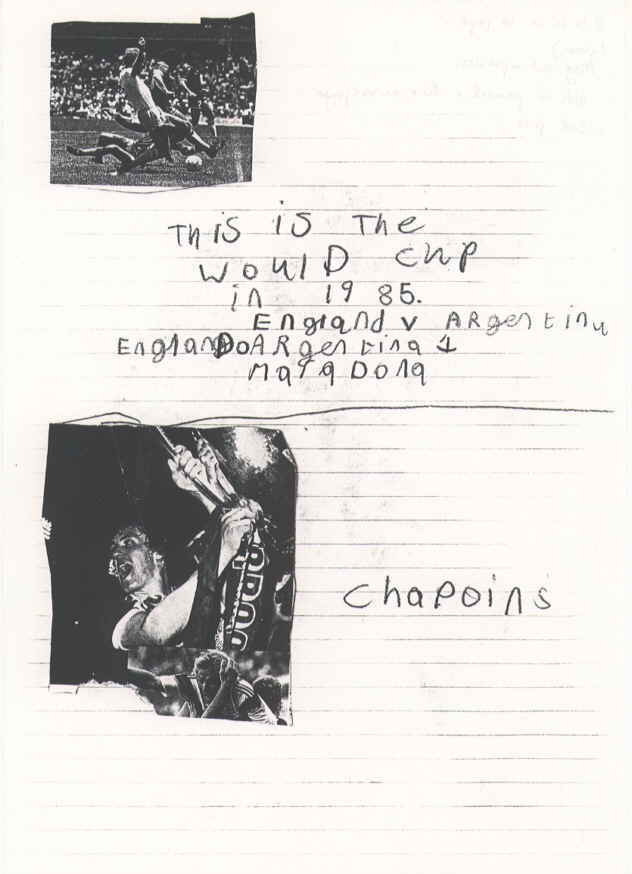 This is The
would cup
in 1985.
England v ARgentina
England 0 ARgentina 1
MaraDona
chapoins